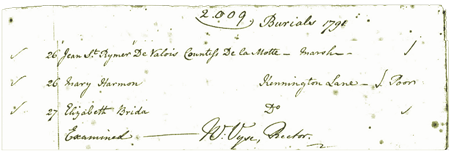 2.009 Burials 1791
26 Jean St. Rymer De Valois Countess De la Motte - Marsh
26 Mary Harmon Kennington Lane - Poor
27 Elizabeth Brida Do
Examined Wm. Vyse, Rector.